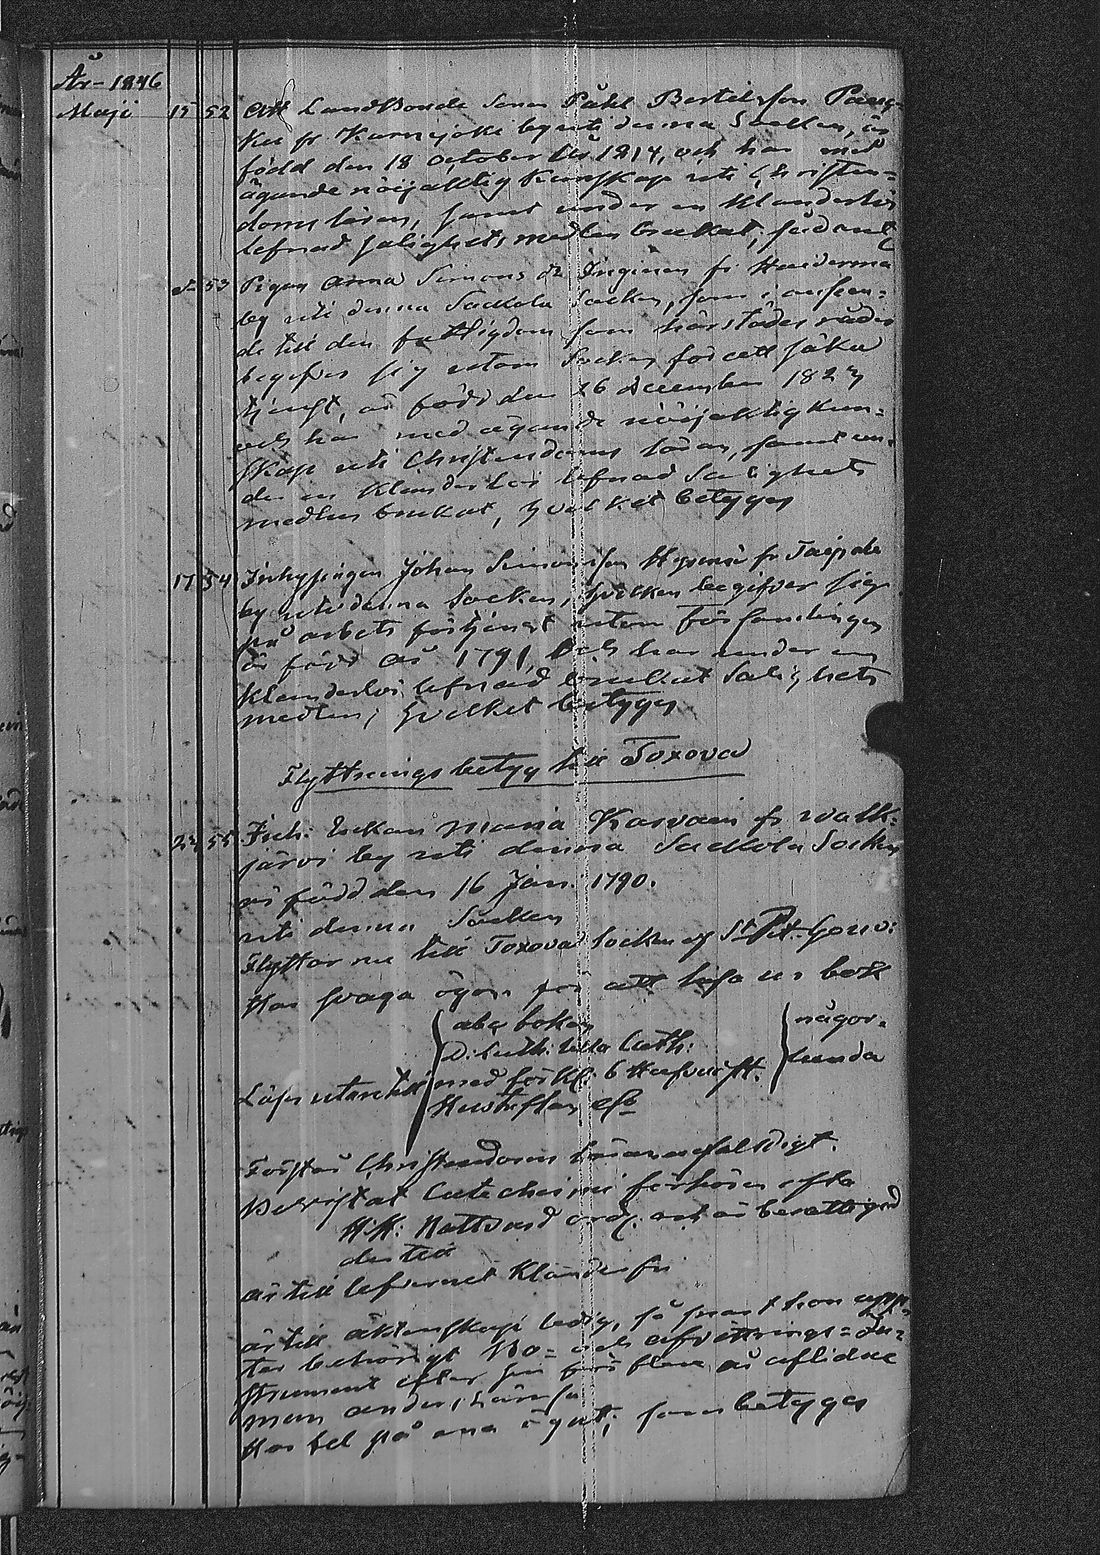 År 1846
Maji 15 52 Att LandBonde Sonen Påhl Bertelsson
ker fr Kurnejoki by uti denna Socken, är
född den 18 october år 1814, och har med
ägande nöijaktig Kunskap uti Christen=
doms läran, samt under en klanderlös
lefnad salighets medlen brukat, sådant
53 Pigan Anna Simons dr Inginen fr Haiderma
by uti denna Sackola Socken, som i anseen=
de till den fattigdom som härstädes råder
begifver sig utom Socken för att söka
tjenst, är född den 26 December 1823
och har med ägande nöijaktig Kun=
skap uti Christendoms läran, samt un=
der en klanderlös lefnad Salighets
medlen brukat, hvilket betyges
17 54 Inhysingen Johan Simonsson fr Taipale
by uti denna Socken, hvilken begifver sig
på arbets förtjenst utom Församlingen
är född år 1791, och har under en
klanderlös lefnad brukat Salighets
medlen, hvilket betyges
Flyttnings betyg till Toxova
55 Inh: Enkan Maria Karvain fr Walk=
järvi by uti denna Sackola Socken
är född den 16 Jan. 1790.
uti denna Socken
Flyttar nu till Toxova Socken af St Pet. Gouv:
Har svaga ögon för att läsa ur bok
abc boken
D: Luth. lilla Cath:
Läser utantill med förkl: 6 Hufvudst.
Hustaflan
någor=
lunda
Förstår Christendoms läran enfaldigt.
Bevistat Catechismi förhören ofta
H. H. Nattvard och är berättigad
der till
är till lefvernet klanderfri
är till äktenskap ledig, så snart hon upp=
ter behörigt Bo= och afvittrings= In=
strument efter sin för flera år aflidne
man
Har fel på ena ögat, som betyges